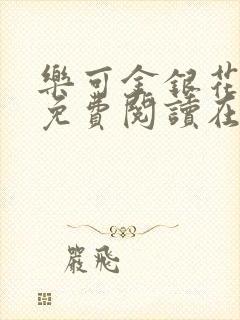 樂可金銀花
免費閱讀在
嚴飛